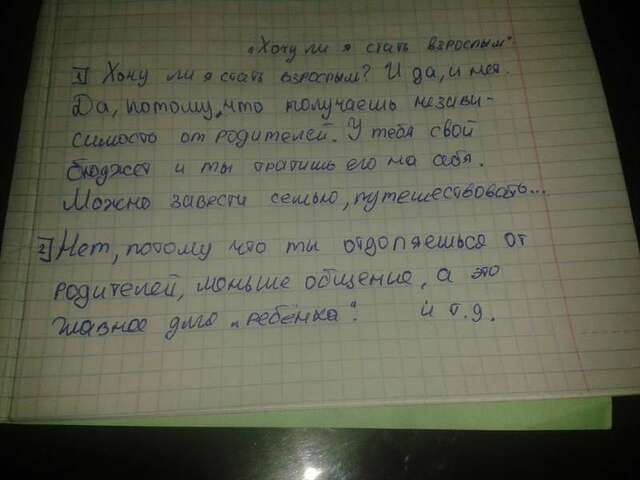 „Хочу ли я стать взрослым"
1) Хочу ли я стать взрослым? И да, и нет.
Да, потому, что получаешь незави-
симость от родителей. У тебя свой
бюджет и ты тратишь его на себя.
Можно завести семью, путешествовать...
2) Нет, потому что ты отдоляешься от
родителей, меньше общение, а это
главное для „ребёнка". и т.д.